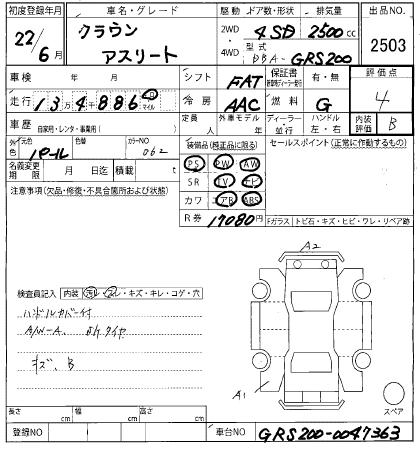 初度登録年月 車名・グレード 駆動 ドア数・形状 排気量 出品NO.
22/6月 クラウン アスリート 2WD・4WD 4 SD 2500cc 2503
型式 DBA-GRS200
車検 年 月 シフト FAT 保証書 有・無 評価点
走行 13万4886 マイル 冷房 AAC 燃料 G 4
車歴 自家用・レンタ・事業用( ) 定員 人 外車モデル 年 ディーラー・並行 ハンドル 左・右 内装評価 B
外色 元色 パール 色替 カラーNO 062 装備品(純正品に限る) セールスポイント(正常に作動するもの)
名義変更期限 月 日迄 積載 t PS PW AW
SR TV ナビ
注意事項(欠品・修復・不具合箇所および状態) カワ エアB ABS
R券 17080円 Fガラス トビ石・キズ・ヒビ・ワレ・リペア跡
A2
検査員記入 内装 汚レ・スレ・キズ・キレ・コゲ・穴
ハンドルカバー付
A/W-A
キズ、B
A1
スペア
長さ cm 幅 cm 高さ cm
登録NO 車台NO GRS200-0047363